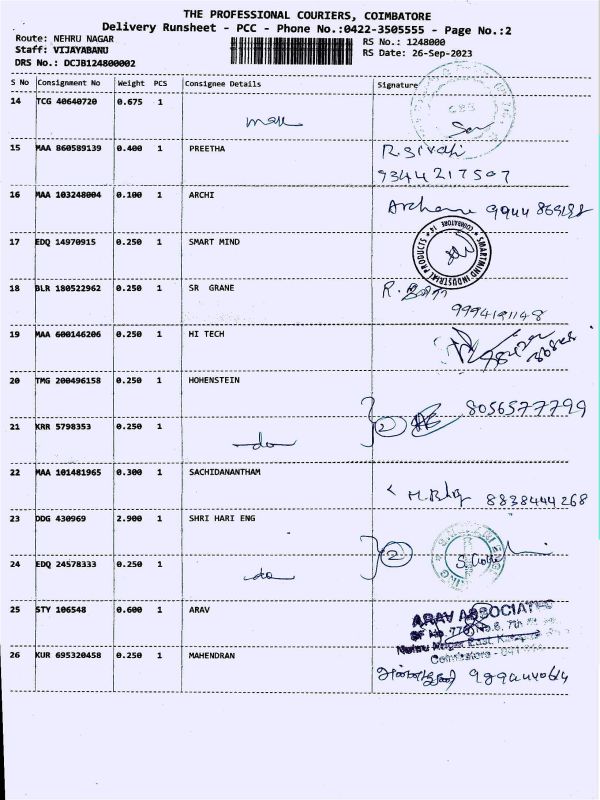 THE PROFESSIONAL COURIERS, COIMBATORE
Delivery Runsheet - PCC - Phone No.:0422-3505555 - Page No.:2
Route: NEHRU NAGAR RS No.: 1248000
Staff: VIJAYABANU RS Date: 26-Sep-2023
DRS No.: DCJB124800002
S No Consignment No Weight PCS Consignee Details Signature
14 TCG 40640720 0.675 1
15 MAA 860589139 0.400 1 PREETHA
9344217507
16 MAA 103248004 0.100 1 ARCHI
17 EDQ 14970915 0.250 1 SMART MIND
SMARTMIND INDUSTRIAL PRODUCTS
COIMBATORE 14
18 BLR 180522962 0.250 1 SR GRANE
19 MAA 600146206 0.250 1 HI TECH
20 TMG 200496158 0.250 1 HOHENSTEIN
8056577799
21 KRR 5798353 0.250 1 do 2
22 MAA 101481965 0.300 1 SACHIDANANTHAM
8838444268
23 DDG 430969 2.900 1 SHRI HARI ENG
24 EDQ 24578333 0.250 1 do 2
25 STY 106548 0.600 1 ARAV
ARAV ASSOCIATES
26 KUR 695320458 0.250 1 MAHENDRAN